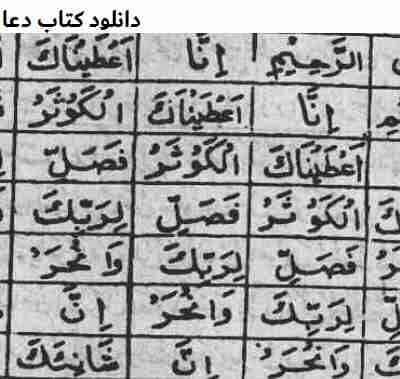 دانلود کتاب دعا
الرَّحِیْمِ اِنَّا اَعْطَیْنَاكَ
اِنَّا اَعْطَیْنَاكَ الْكَوْثَرَ
اَعْطَیْنَاكَ الْكَوْثَرَ فَصَلِّ
الْكَوْثَرَ فَصَلِّ لِرَبِّكَ
فَصَلِّ لِرَبِّكَ وَانْحَرْ
لِرَبِّكَ وَانْحَرْ اِنَّ
وَانْحَرْ اِنَّ شَانِئَكَ